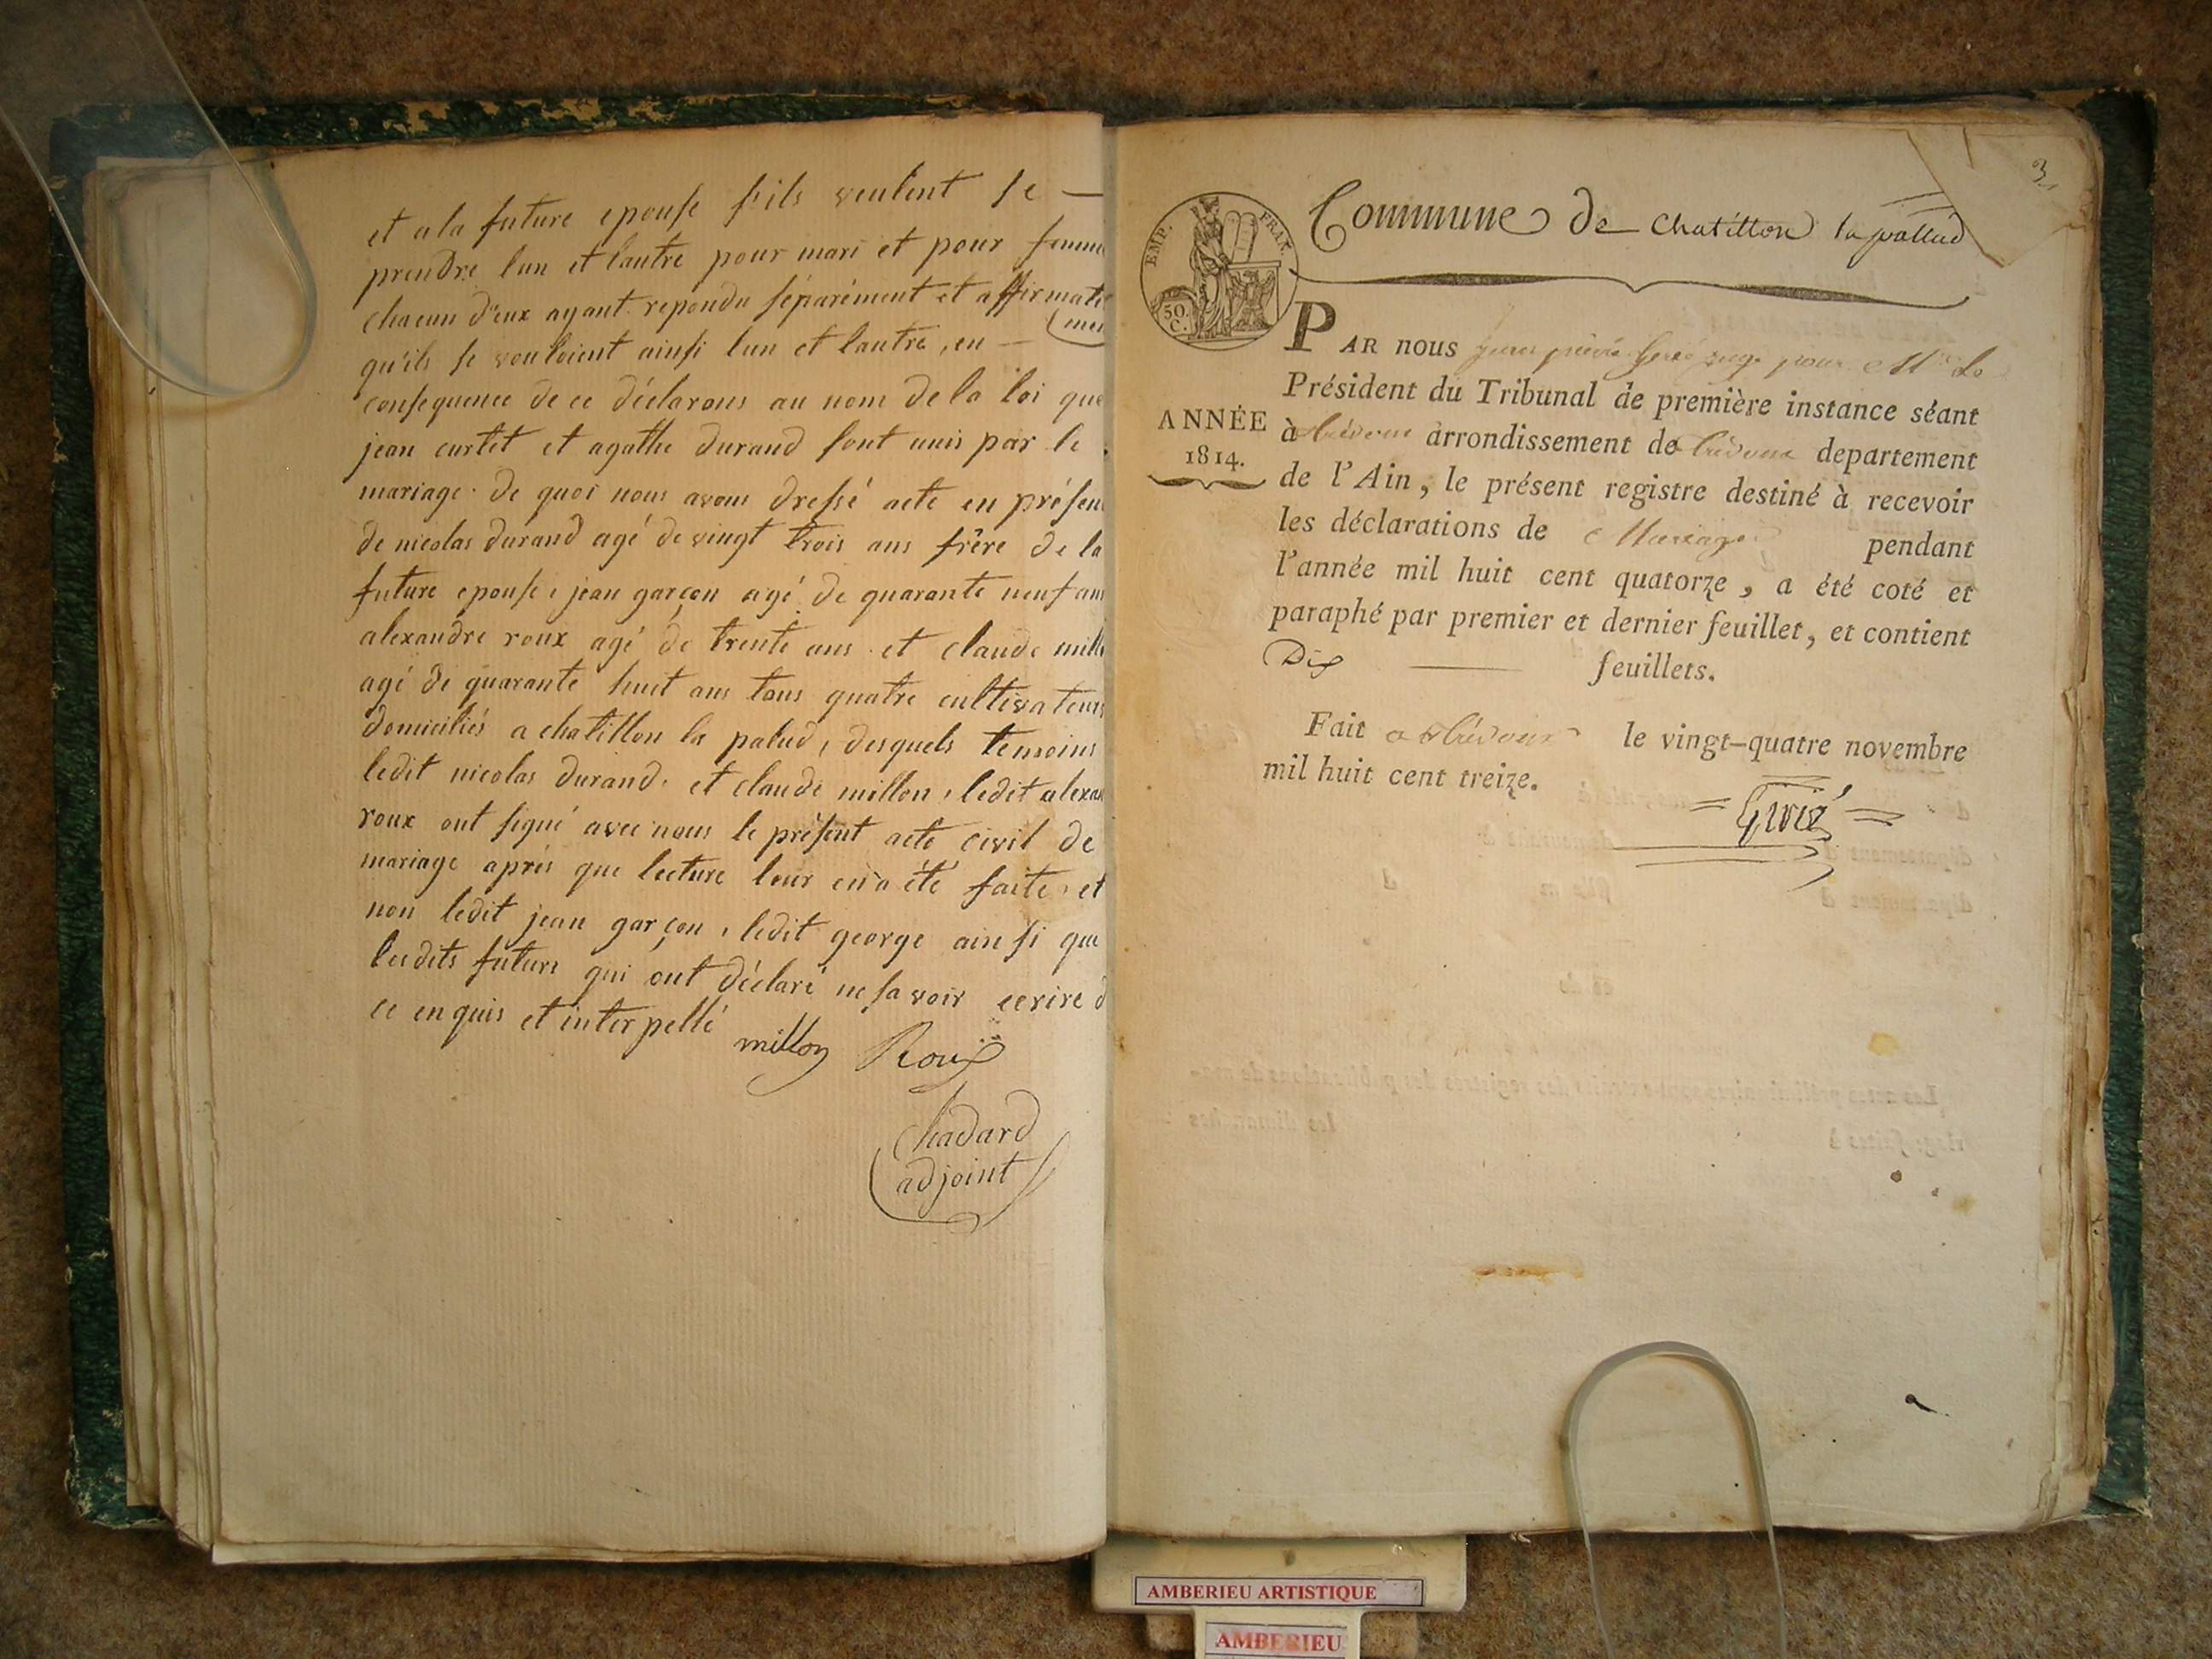 et a la future epouse s'ils veulent se —
prendre lun et lautre pour mari et pour femme
chacun d'eux ayant repondu séparément et affirmati
men
qu'ils se vouloient ainsi lun et lautre, en —
consequence de ce déclarons au nom de la loi que
jean curtet et agathe durand sont unis par le
mariage. de quoi nous avons dressé acte en présen
de nicolas durand agé de vingt trois ans frère de la
future epouse, jean garçon agé de quarante neuf ans
alexandre roux agé de trente ans et claude mill
agé de quarante huit ans tous quatre cultivateurs
domiciliés a chatillon la palud, desquels temoins
ledit nicolas durand. et claude millon, ledit alexan
roux ont signé avec nous le présent acte civil de
mariage après que lecture leur en a été faite, et
non ledit jean garçon, ledit george ainsi que
lesdits futurs qui ont déclaré ne savoir ecrire d
ce enquis et interpellé
millon Roux
Chadard
adjoint
3
EMP. FRAN.
50.
C.
Commune de Chatillon la pallud
ANNÉE
1814.
PAR nous juge pour Mr. Le
Président du Tribunal de première instance séant
à trévoux arrondissement de trévoux departement
de l'Ain, le présent registre destiné à recevoir
les déclarations de Mariages pendant
l'année mil huit cent quatorze, a été coté et
paraphé par premier et dernier feuillet, et contient
Dix feuillets.
Fait a trévoux le vingt-quatre novembre
mil huit cent treize.
AMBERIEU ARTISTIQUE
AMBERIEU